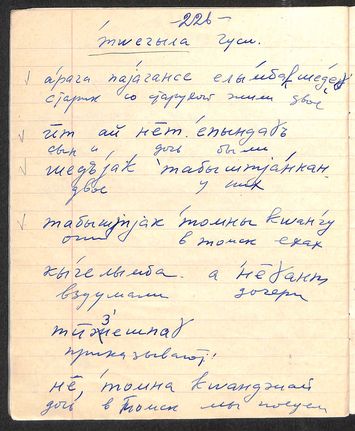 - 226 -
тшечыла гуси.
áрача паjáгансе елы́мба шедеɣ
старик со старухой жили двое
ӣт ай нēт. éпындадъ
сын и дочь были
шедъjак табыштjáнкан
двое у них
табыштjак тóмны квангу
они в томск ехат
кы́гелымба. а нéɣант
вздумали дочери
приказывают:
нé, тóмна кванджай
дочь в Томск мы поедем